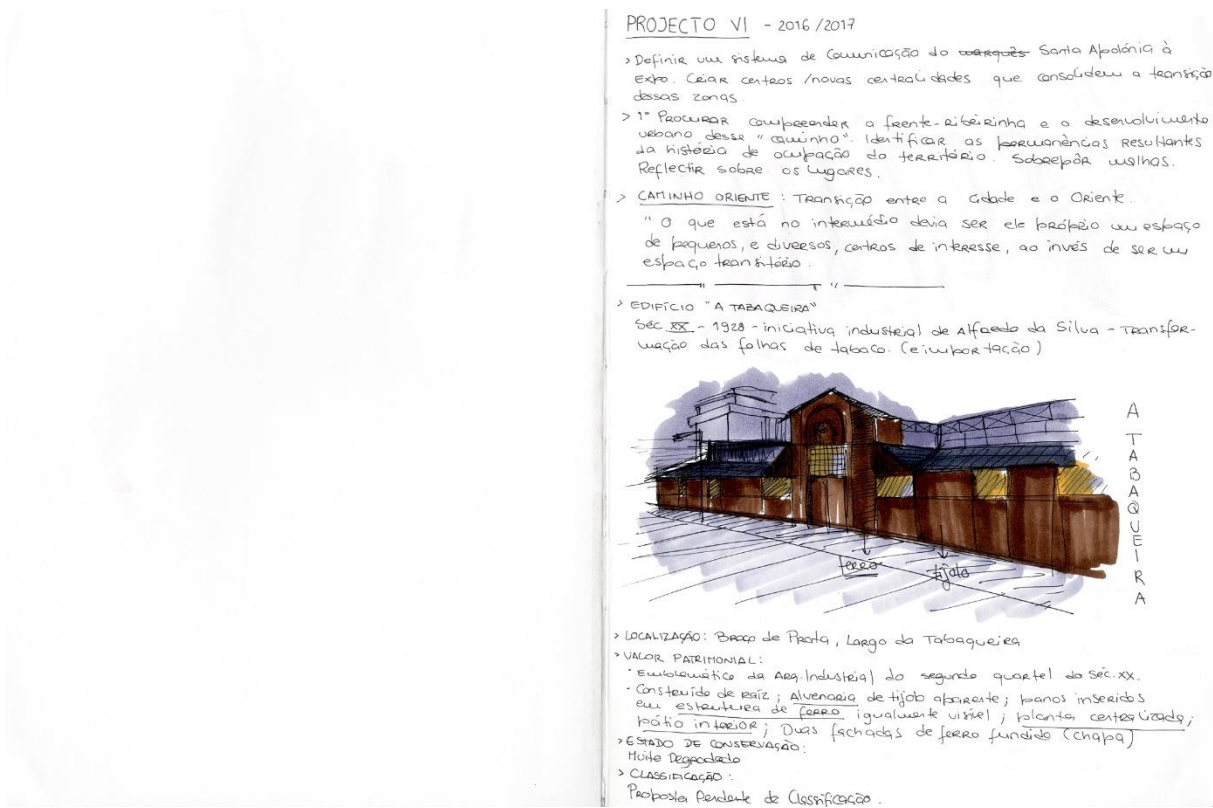 PROJECTO VI - 2016/2017
> Definir um sistema de Comunicação do marquês Santa Apolónia à
Expo. Criar centros /novas centralidades que consolidem a transição
dessas zonas.
> 1º Procurar compreender a frente-ribeirinha e o desenvolvimento
urbano desse "caminho". Identificar as permanências resultantes
da história de ocupação do território. Sobrepôr malhas.
Reflectir sobre os lugares.
> CAMINHO ORIENTE : Transição entre a cidade e o Oriente.
"O que está no intermédio devia ser ele próprio um espaço
de pequenos, e diversos, centros de interesse, ao invés de ser um
espaço transitório.
> EDIFÍCIO "A TABAQUEIRA"
Séc. XX - 1928 - iniciativa industrial de Alfredo da Silva - Transfor-
mação das folhas de tabaco. (e importação)
A TABAQUEIRA
ferro tijolo
> LOCALIZAÇÃO: Braço de Prata, Largo da Tabaqueira
> VALOR PATRIMONIAL:
· Emblemático da Arq. Industrial do segundo quartel do Séc. XX.
· Construído de raíz ; Alvenaria de tijolo aparente ; panos inseridos
em estrutura de ferro igualmente visível ; planta centralizada;
pátio interior ; Duas fachadas de ferro fundido (chapa)
> ESTADO DE CONSERVAÇÃO:
Muito Degradado
> CLASSIFICAÇÃO :
Proposta Pendente de Classificação.